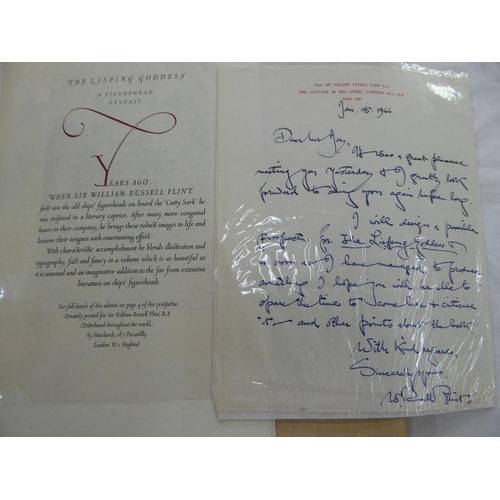 THE LISPING GODDESS
A FIGUREHEAD
FANTASY
YEARS AGO
WHEN SIR WILLIAM RUSSELL FLINT
first saw the old ships' figureheads on board the 'Cutty Sark' he
was inspired to a literary caprice. After many more congenial
hours in their company, he brings these robust images to life and
loosens their tongues with entertaining effect.
With characteristic abandon he blends illustration and
typography, fact and fancy in a volume which is as beautiful as
it is unusual and an imaginative addition to the far from extensive
literature on ships' figureheads
For full details of this edition see page 4 of this prospectus
Privately printed for Sir William Russell Flint, R.A.
(Distributed throughout the world,
by Hatchards, 187 Piccadilly
London W. 1 England
FROM SIR WILLIAM RUSSELL FLINT R.A.
PEEL COTTAGE, 80 PEEL STREET, CAMPDEN HILL, W.8
PARK
Jan. 18. 1966
Dear
It was a great pleasure
meeting you yesterday & I greatly look
forward to seeing you again before long.
I will design a possible
prospectus for The Lisping Goddess &
as soon as I have managed to produce
something I hope you will be able to
spare the time to come here & criticise
it — and other points about the book.
With kind regards,
Sincerely yours,
W. Russell Flint.